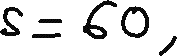 s = 60,